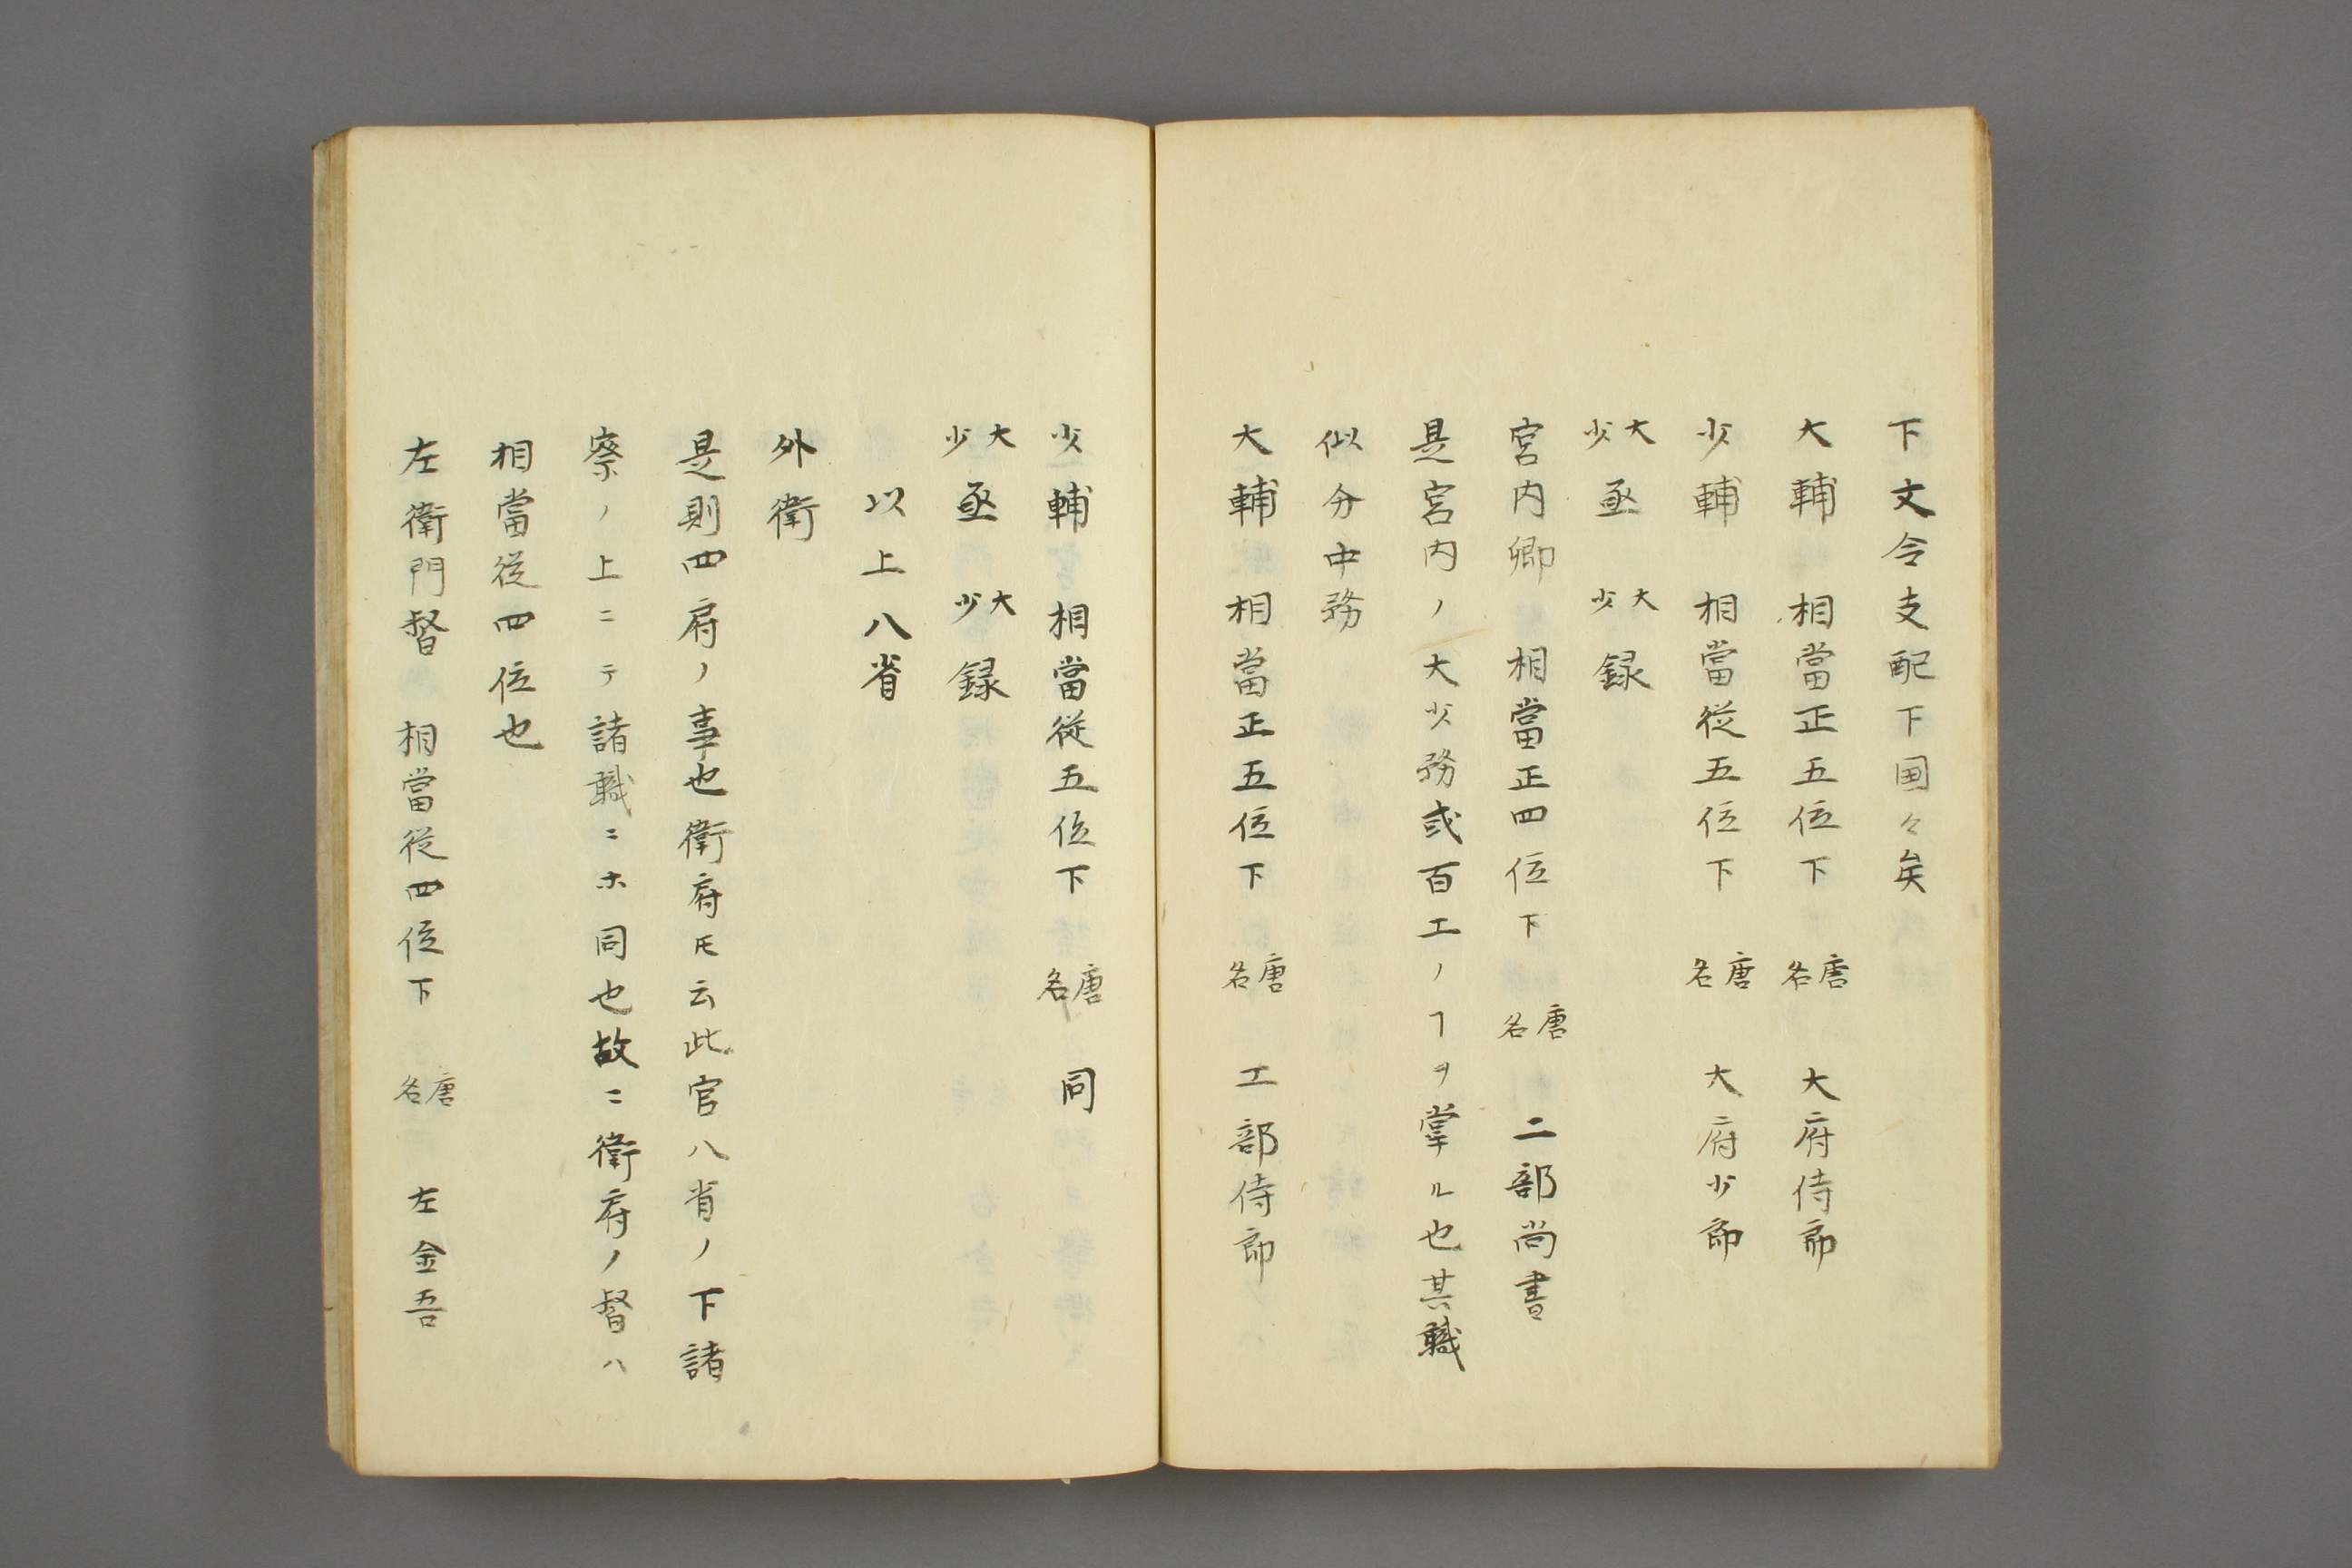 下文令支配下国々矣
大輔 相當正五位下 唐名 大府侍郎
少輔 相當従五位下 唐名 大府少郎
大少丞 大少録
宮内卿 相當正四位下 唐名 二部尚書
是宮内ノ大少務或百工ノヿヲ掌ル也其職
似分中務
大輔 相當正五位下 唐名 工部侍郎
少輔 相當従五位下 唐名 同
大少丞 大少録
以上八省
外衛
是則四府ノ事也衛府圧云此官八省ノ下諸
寮ノ上ニテ諸職ニホ同也故ニ衛府ノ督ハ
相當従四位也
左衛門督 相當従四位下 唐名 左金吾